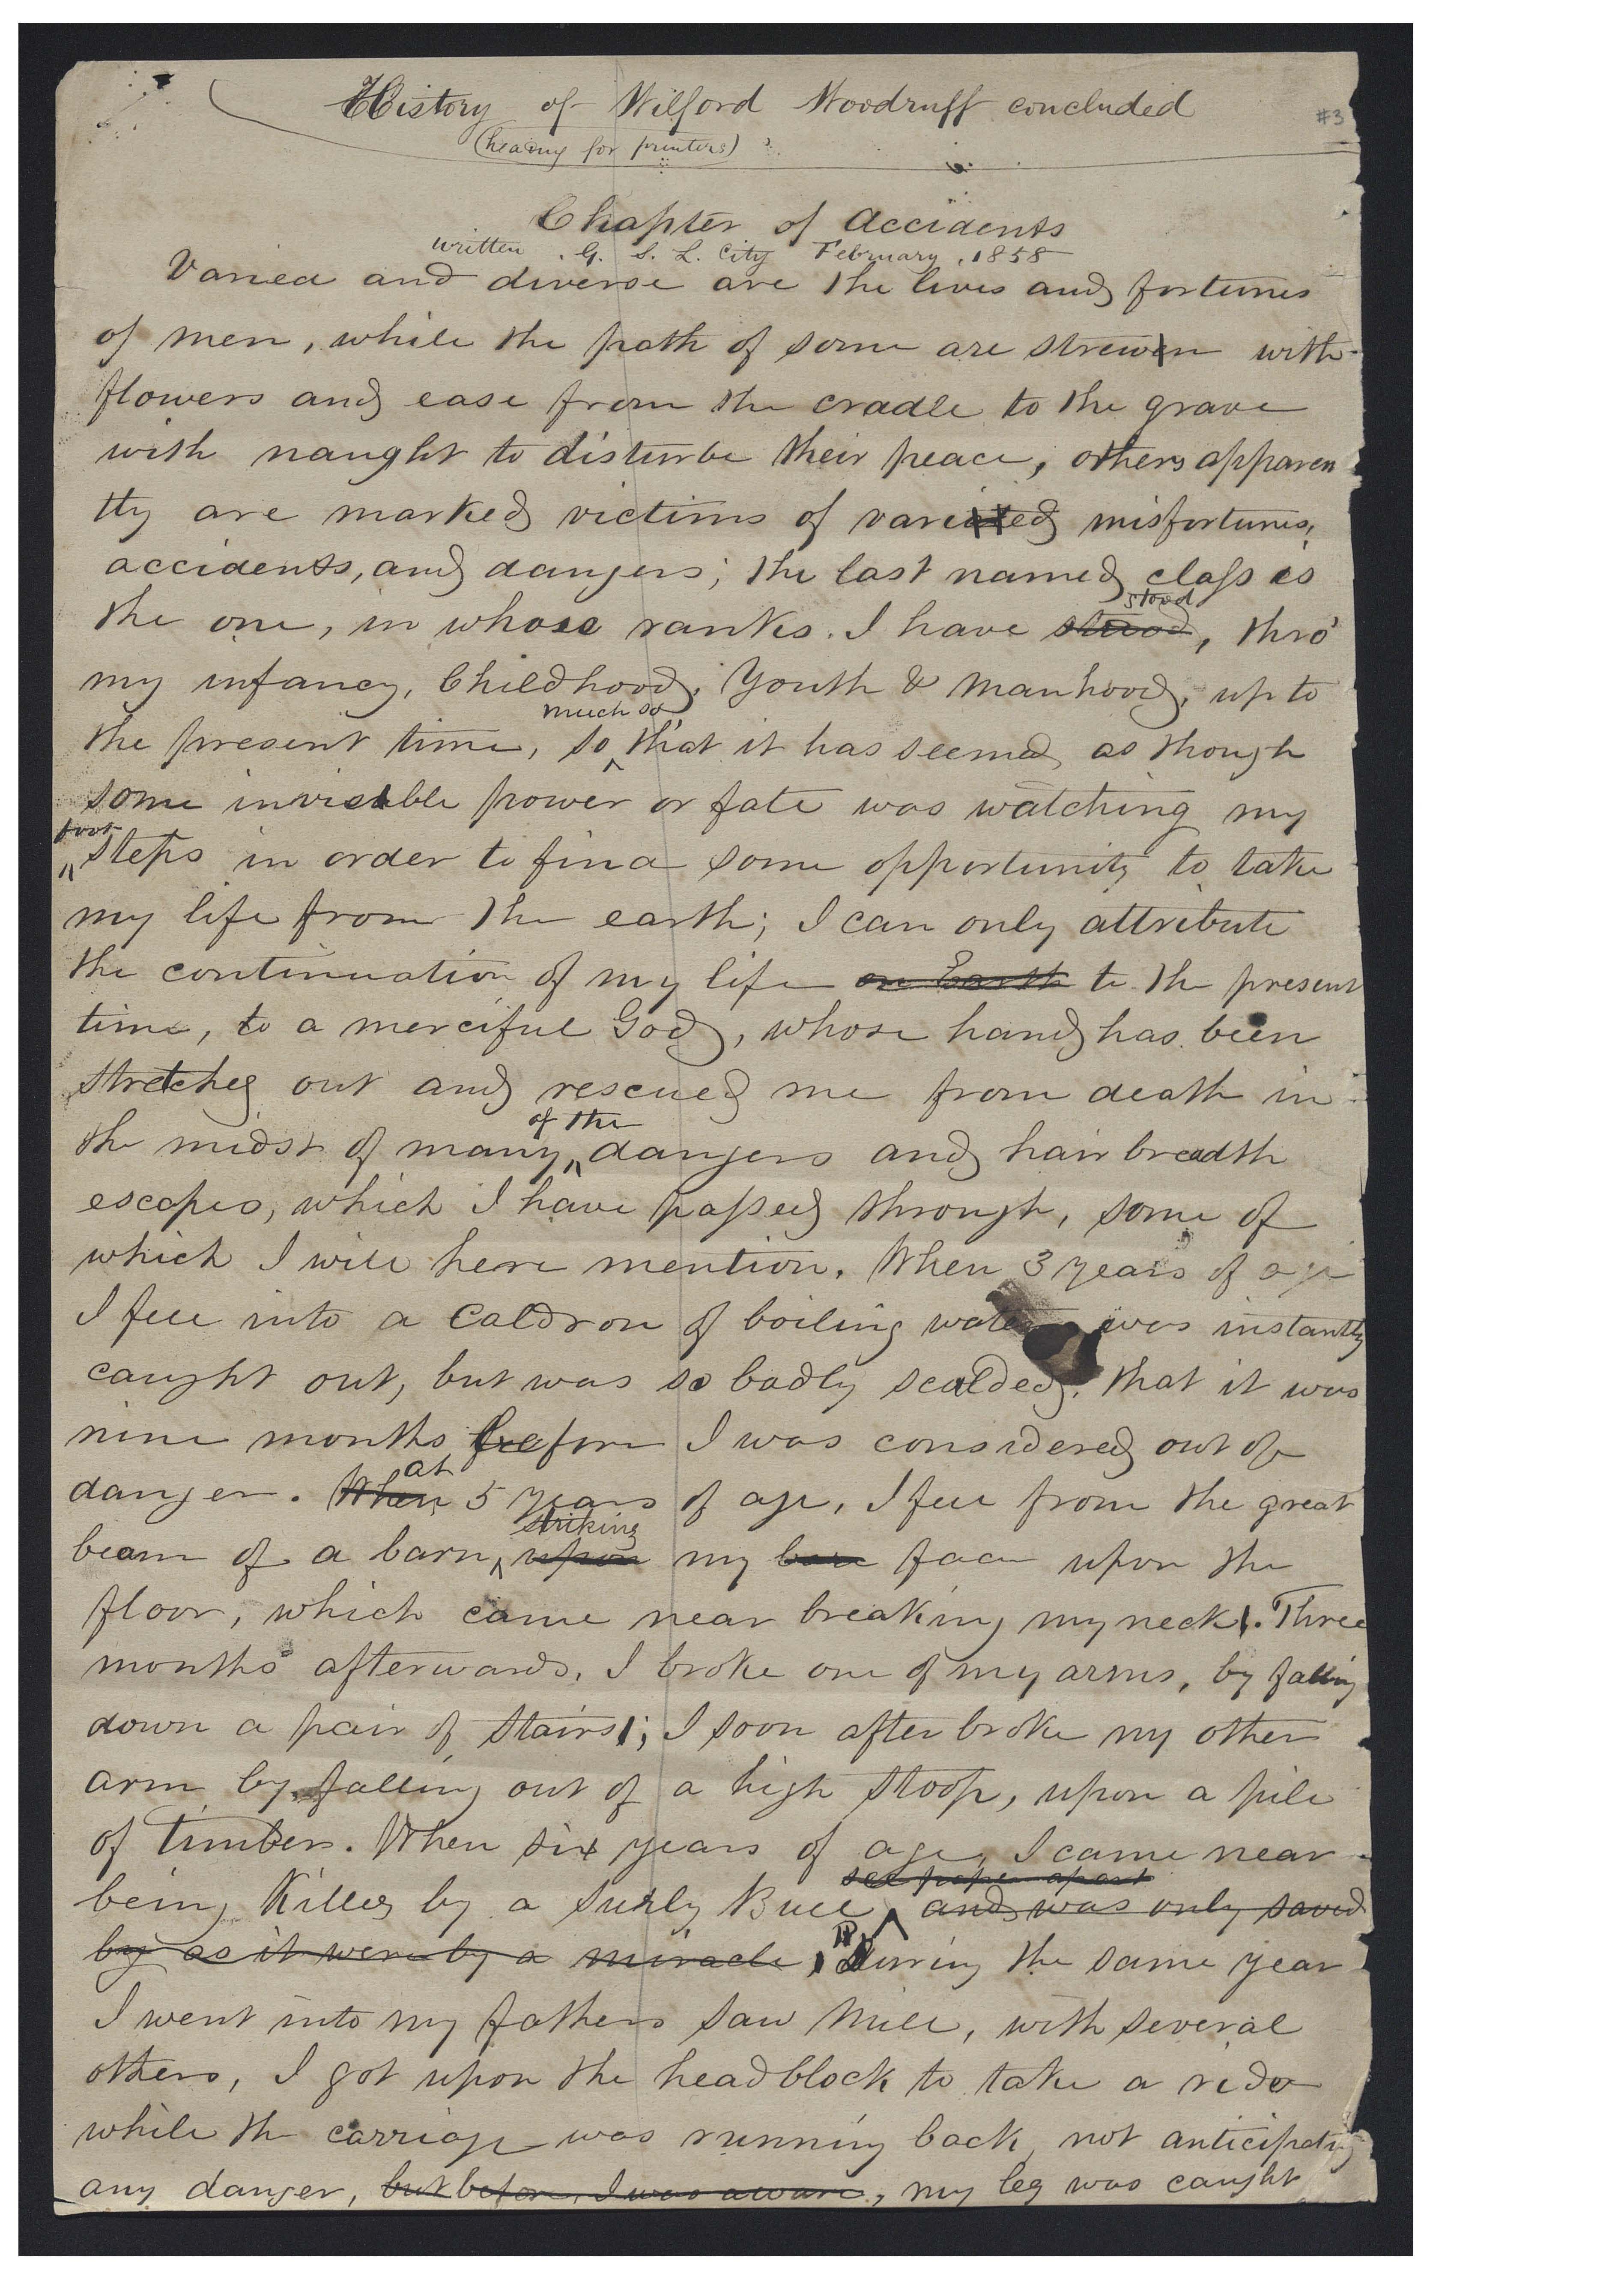 History of Wilford Woodruff concluded
#3
(heading for printers)
Chapter of Accidents
written G. S. L. City February, 1858
Varied and diverse are the lives and fortunes
of men, while the path of some are strewn with
flowers and ease from the cradle to the grave
with naught to disturbe their peace, others apparen
tly are marked victims of varied misfortunes,
accidents, and dangers; the last named class is
stood
the one, in whose ranks. I have stood, thro'
my infancy, Childhood, Youth & Manhood, up to
much so
the present time, so that it has seemed as though
some invisible power or fate was watching my
foot
steps in order to find some opportunity to take
my life from the earth; I can only attribute
the continuation of my life on Earth to the present
time, to a merciful God, whose hand has been
stretched out and rescued me from death in
of the
the midst of many dangers and hair breadth
escapes, which I have passed through, some of
which I will here mention. When 3 years of age
I fell into a Caldron of boiling water was instantly
caught out, but was so badly scalded, that it was
nine months before I was considered out of
at
danger. When 5 years of age, I fell from the great
striking
beam of a barn, upon my face upon the
floor, which came near breaking my neck. Three
months afterwards, I broke one of my arms, by falling
down a pair of stairs; I soon after broke my other
arm by falling out of a high stoop, upon a pile
of timber. When six years of age, I came near
being Killed by a surly Bull, and was only saved
by as it were by a miracle, During the same year
I went into my fathers saw Mill, with several
others, I got upon the headblock to take a ride
while the carriage was running back, not anticipating
any danger, but before, I was aware, my leg was caught